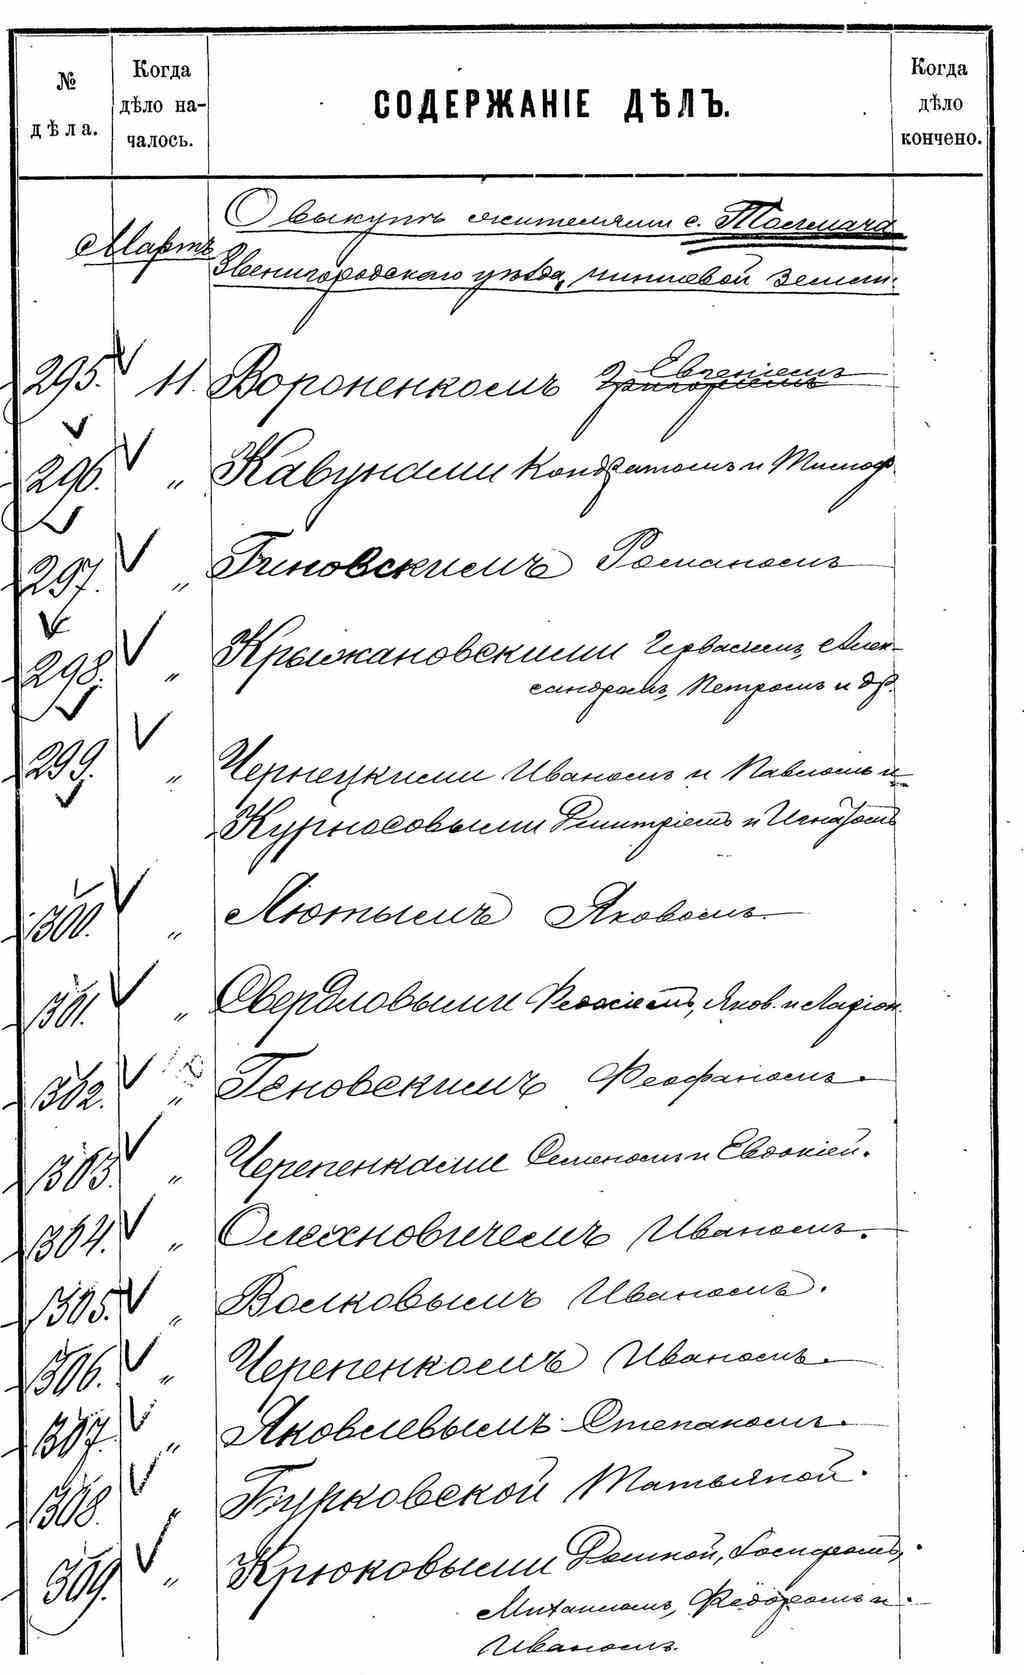 № дѣла.
Когда дѣло на-
чалось.
СОДЕРЖАНІЕ ДѢЛЪ.
Когда дѣло кончено.
О выкупѣ жителями с. Толмача
Мартъ
Звенигородскаго уѣзда, чиншевой земли:
295. 11. Вороненкомъ Григоріемъ Евгеніемъ
296. " Кавунами Кондратомъ и Тимоф.
297. " Гиновскимъ Романомъ
298. " Крыжановскими Герваciемъ, Алек-
сандромъ, Петромъ и др.
299. " Чернецкими Иваномъ и Павломъ и
Курносовыми Дмитріемъ и Игнатомъ
300. " Лютымъ Яковомъ.
301. " Свердловыми Феодосіемъ, Яков. и Ларіон.
302. " Геновскимъ Феофаномъ.
303. " Черепенками Семеномъ и Евдокіей.
304. " Олехновичемъ Иваномъ.
305. " Волковымъ Иваномъ.
306. " Черепенкомъ Иваномъ.
307. " Яковлевымъ Степаномъ.
308. " Бурковской Татьяной.
309. " Крюковыми Домной,
Михаиломъ, Федоромъ и
Иваномъ.